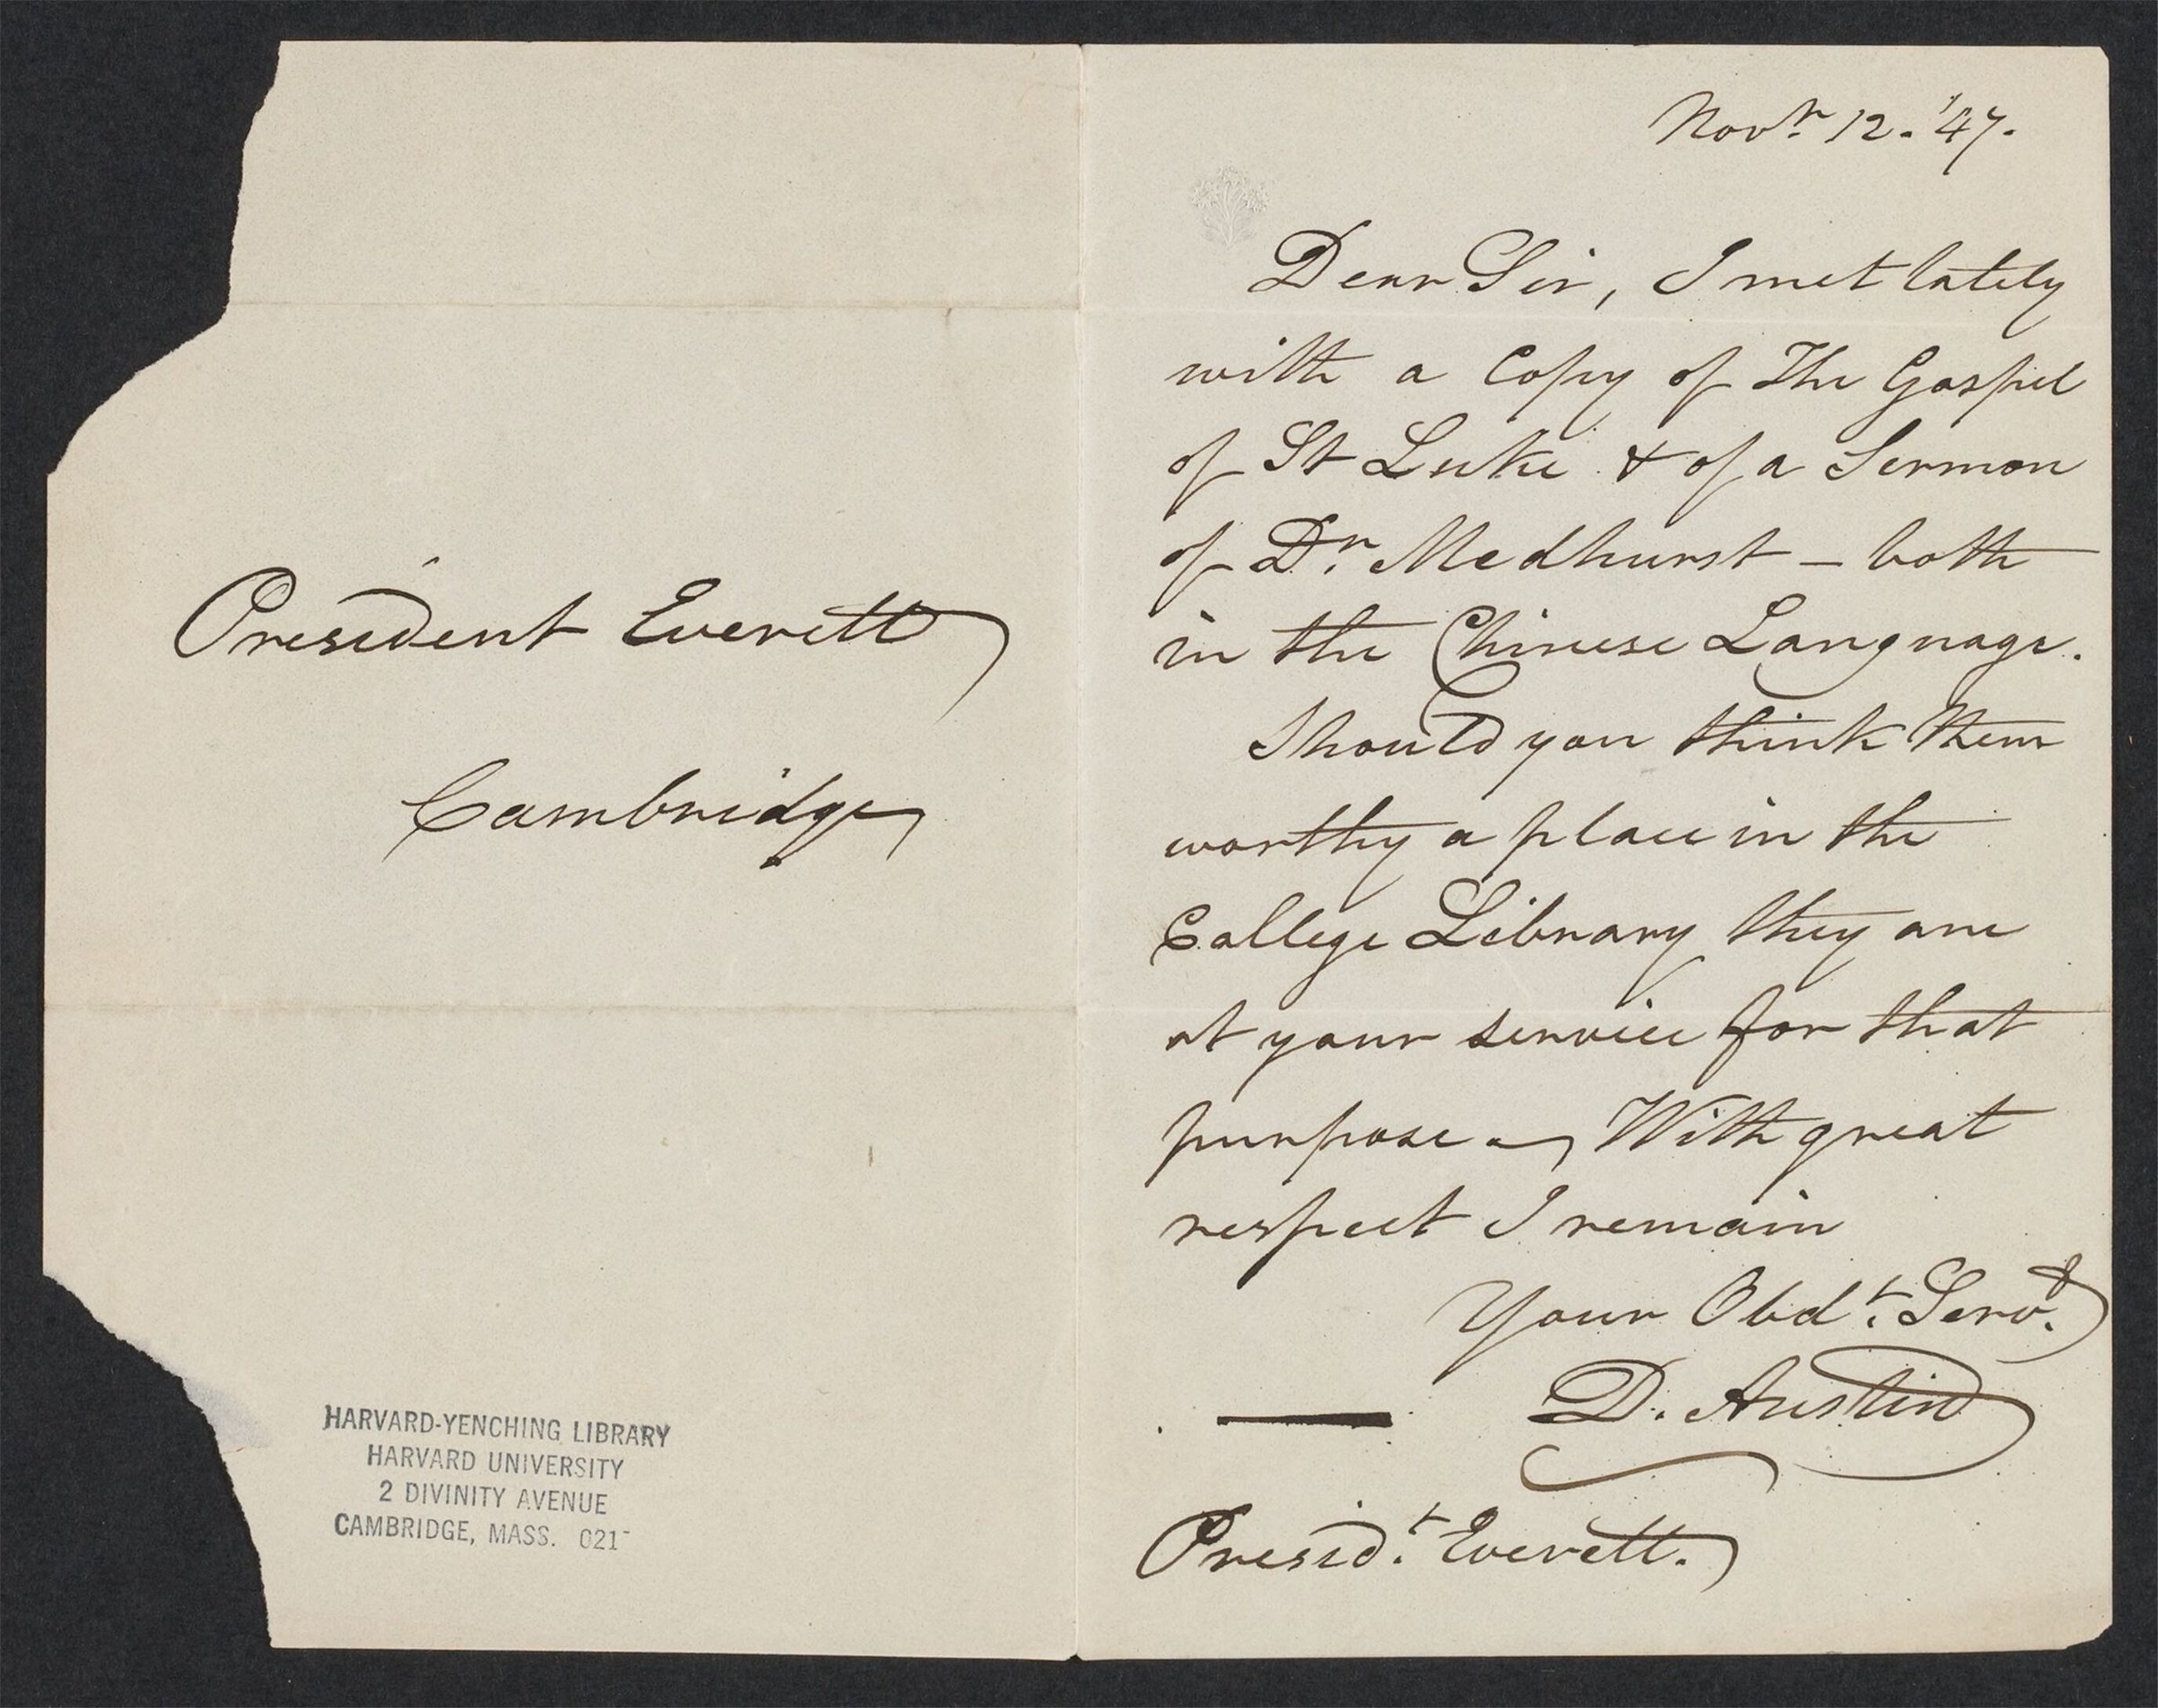 President Everett
Cambridge
HARVARD-YENCHING LIBRARY
HARVARD UNIVERSITY
2 DIVINITY AVENUE
CAMBRIDGE, MASS. 021
Novr. 12. '47.
Dear Sir, I met lately
with a Copy of The Gospel
of St Luke & of a Sermon
of Dr. Medhurst – both
in the Chinese Language.
Should you think them
worthy a place in the
College Library they are
at your service for that
purpose – With great
respect I remain
Your Obdt. Servt.
D. Austin
Presidt. Everett.